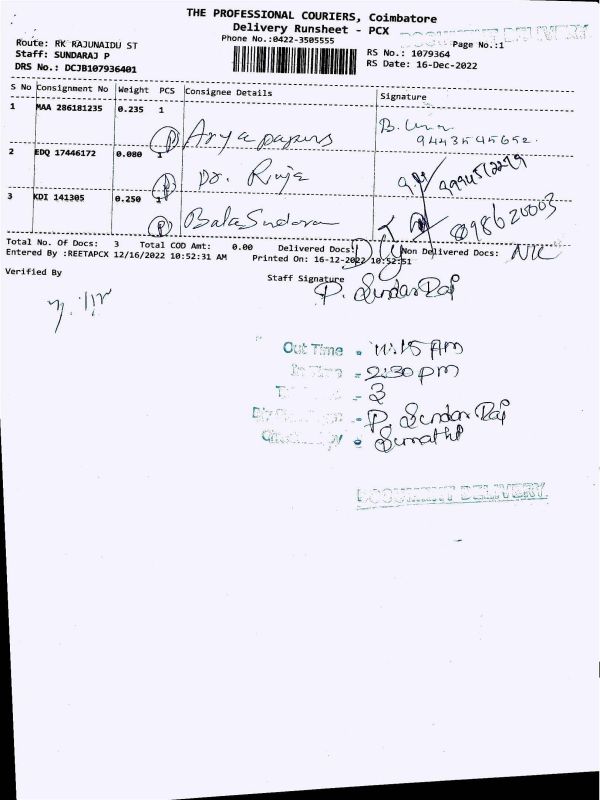 THE PROFESSIONAL COURIERS, Coimbatore
Delivery Runsheet - PCX
DOCUMENT DELIVERY
Phone No.:0422-3505555
Page No.:1
Route: RK RAJUNAIDU ST
Staff: SUNDARAJ P
DRS No.: DCJB107936401
RS No.: 1079364
RS Date: 16-Dec-2022
S No Consignment No Weight PCS Consignee Details Signature
1 MAA 286181235 0.235 1 Arya papers
9443545652
2 EDQ 17446172 0.080 1 Dr. Roja
3 KDI 141305 0.250 1 BalaSundaram
Total No. Of Docs: 3 Total COD Amt: 0.00 Delivered Docs: Non Delivered Docs: NIL
Entered By :REETAPCX 12/16/2022 10:52:31 AM Printed On: 16-12-2022 10:52:51
Verified By
Staff Signature
P. Sundar Raj
Out Time - 11:15 AM
In Time - 2:30 pm
- 3
- P. Sundar Raj
Sumathi
DOCUMENT DELIVERY